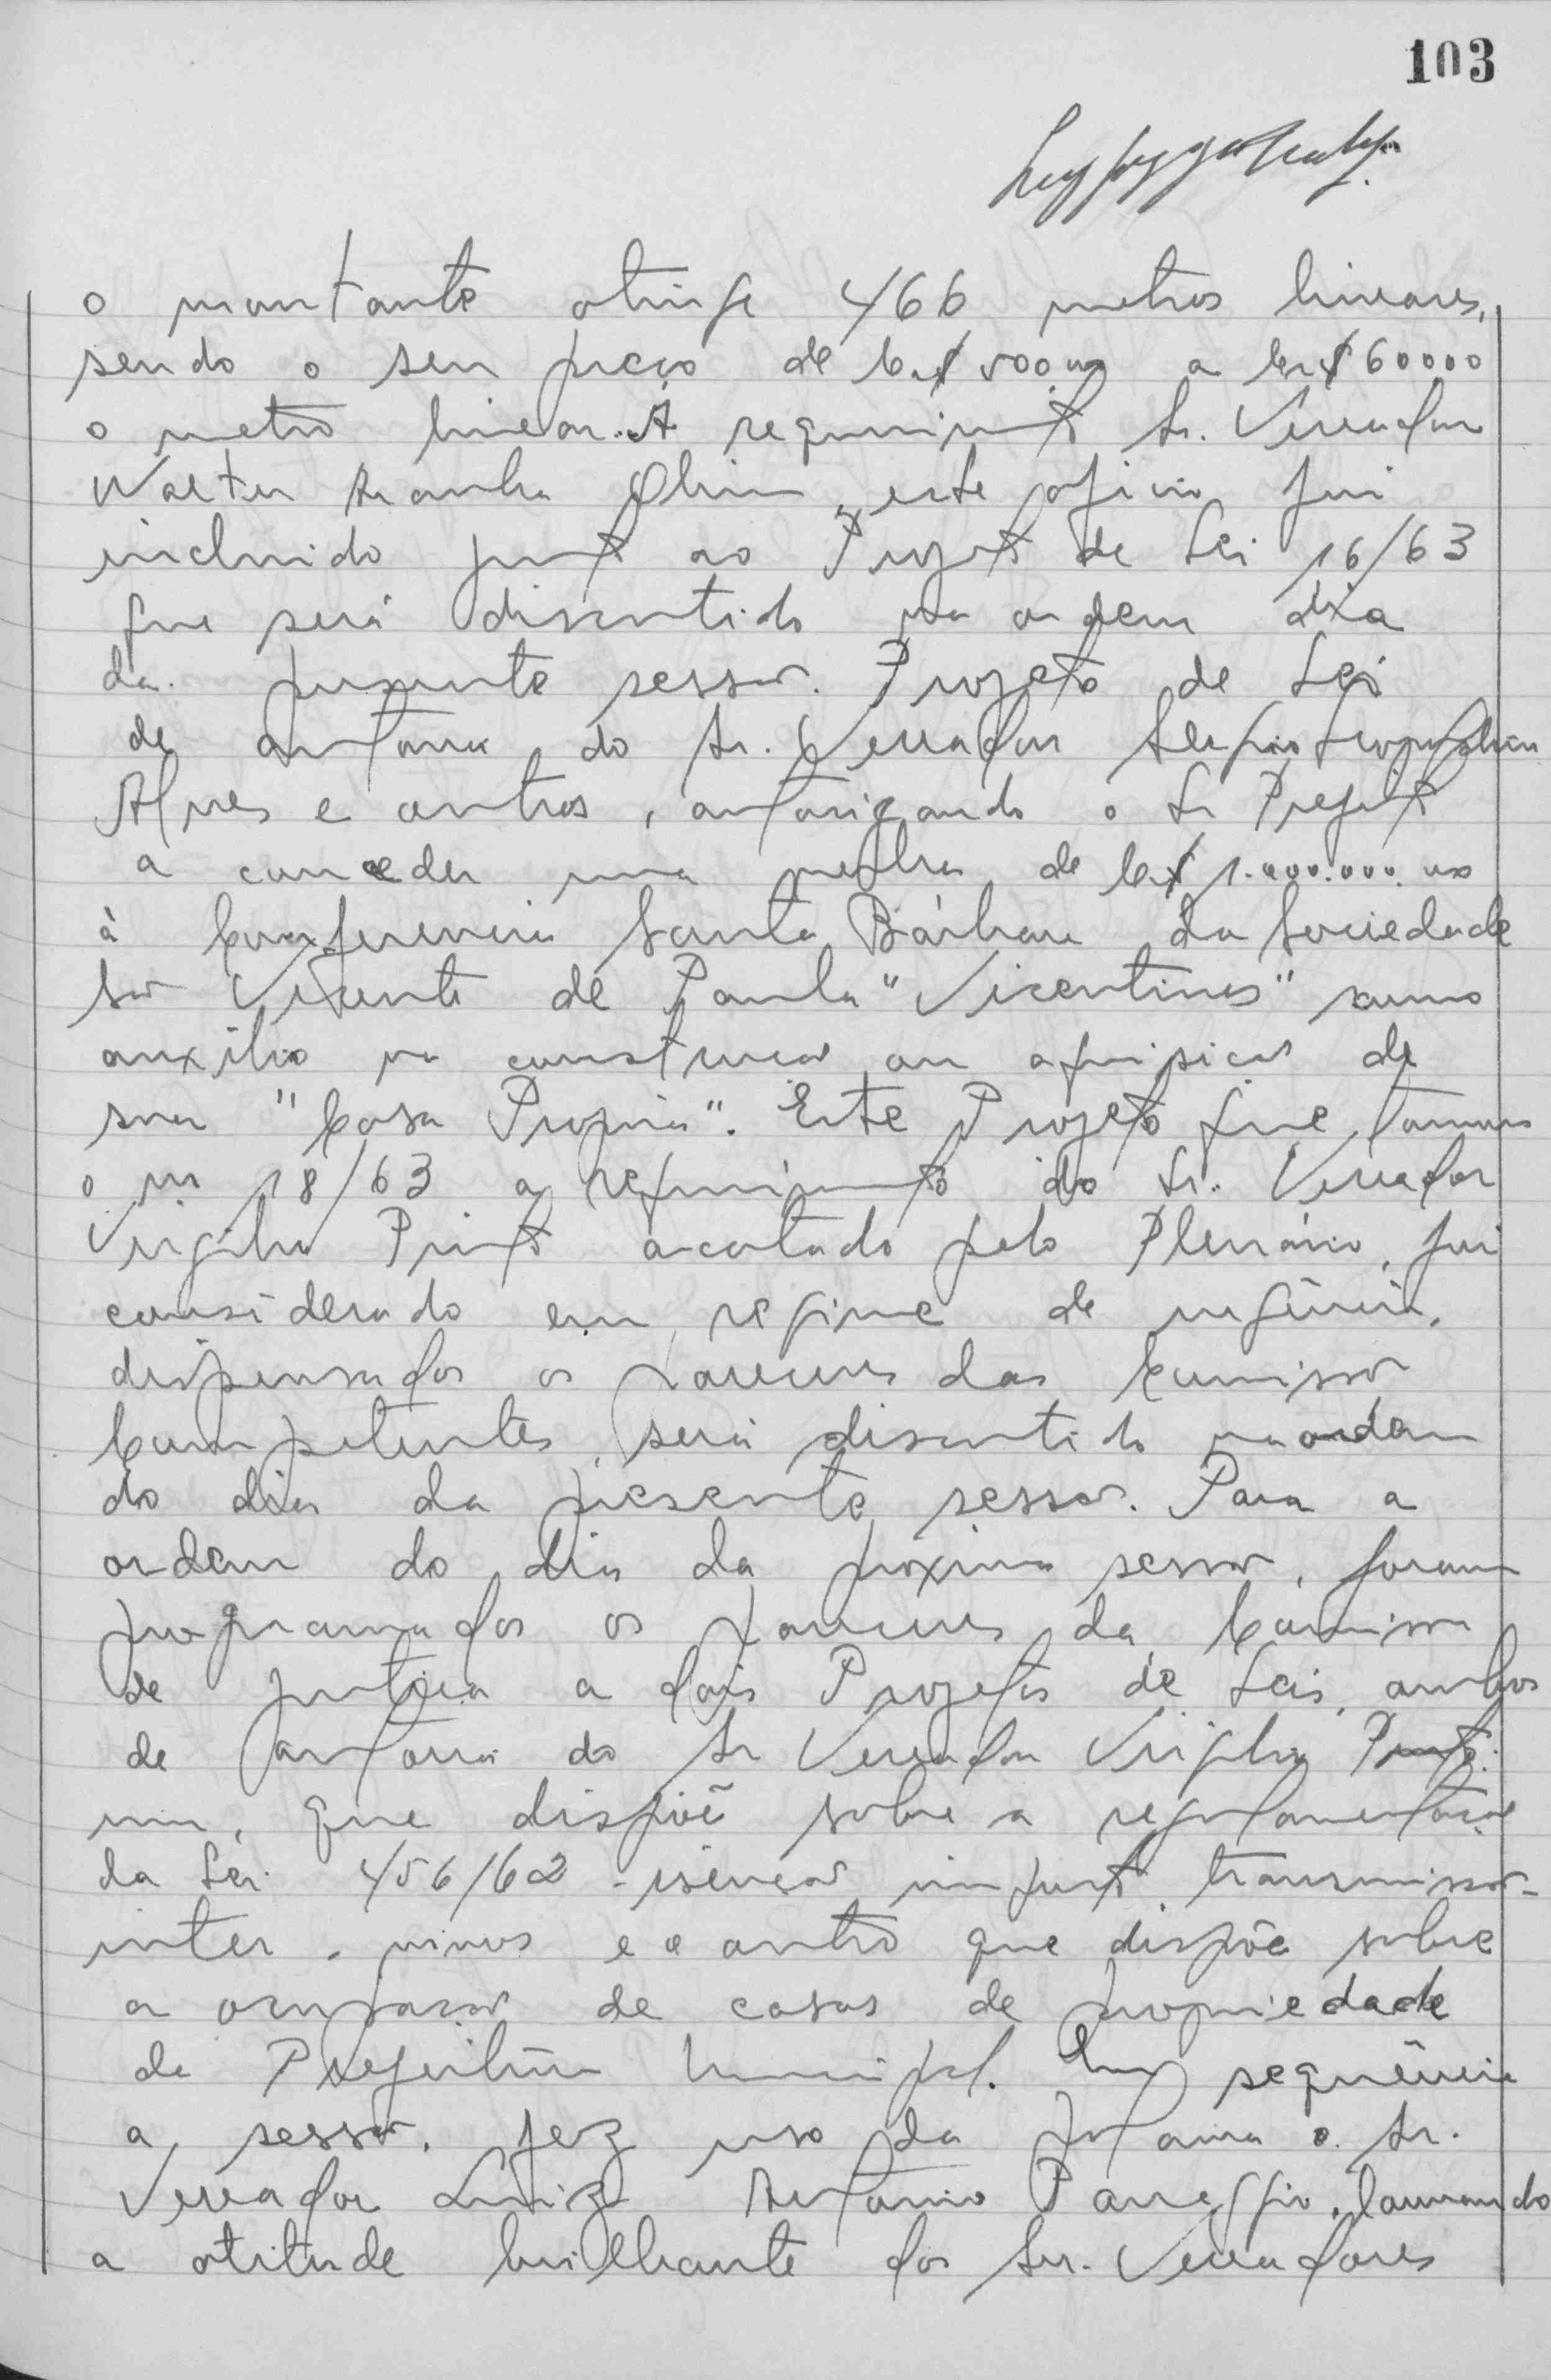 103
o montante atinge 466 metros lineares,
sendo o seu preço de Cr$ 500,00 a Cr$ 600,00
o metro linear. A requerimento Sr. Vereador
Walter Aranha Olim, este oficio foi
incluido junto ao Projeto de Lei 16/63
que será discutido na ordem dia
da presente sessão. Projeto de Lei
de autoria do Sr. Vereador Sergio
Alves e outros, autorizando o Sr Prefeito
a conceder uma verba de Cr$ 1.000.000.00
à Conferencia Santa Bárbara da Sociedade
São Vicente de Paula "Vicentinos" como
auxilio na construção ou aquisição de
sua "Casa Propria". Este Projeto que tomou
o nº 18/63 a requerimento do Sr. Vereador
Virgilio Pinto acatado pelo Plenário, foi
considerado em regime de urgência,
dispensados os pareceres das Comissão
Competentes, será discutido na ordem
do dia da presente sessão. Para a
ordem do dia da proxima sessão, foram
programados os pareceres da Comissão
de Justiça a dois Projetos de Leis, ambos
de autoria do Sr Vereador Virgilio Pinto:
um, que dispõe sobre a regulamentação
da Lei 456/62 - isenção imposto transmissão-
inter-vivos e o outro que dispõe sobre
a ocupação de casas de propriedade
da Prefeitura Municipal. Em sequência
a sessão, fez uso da palavra o Sr.
Vereador Luiz Antonio Panaggio, louvando
a atitude brilhante dos Srs. Vereadores